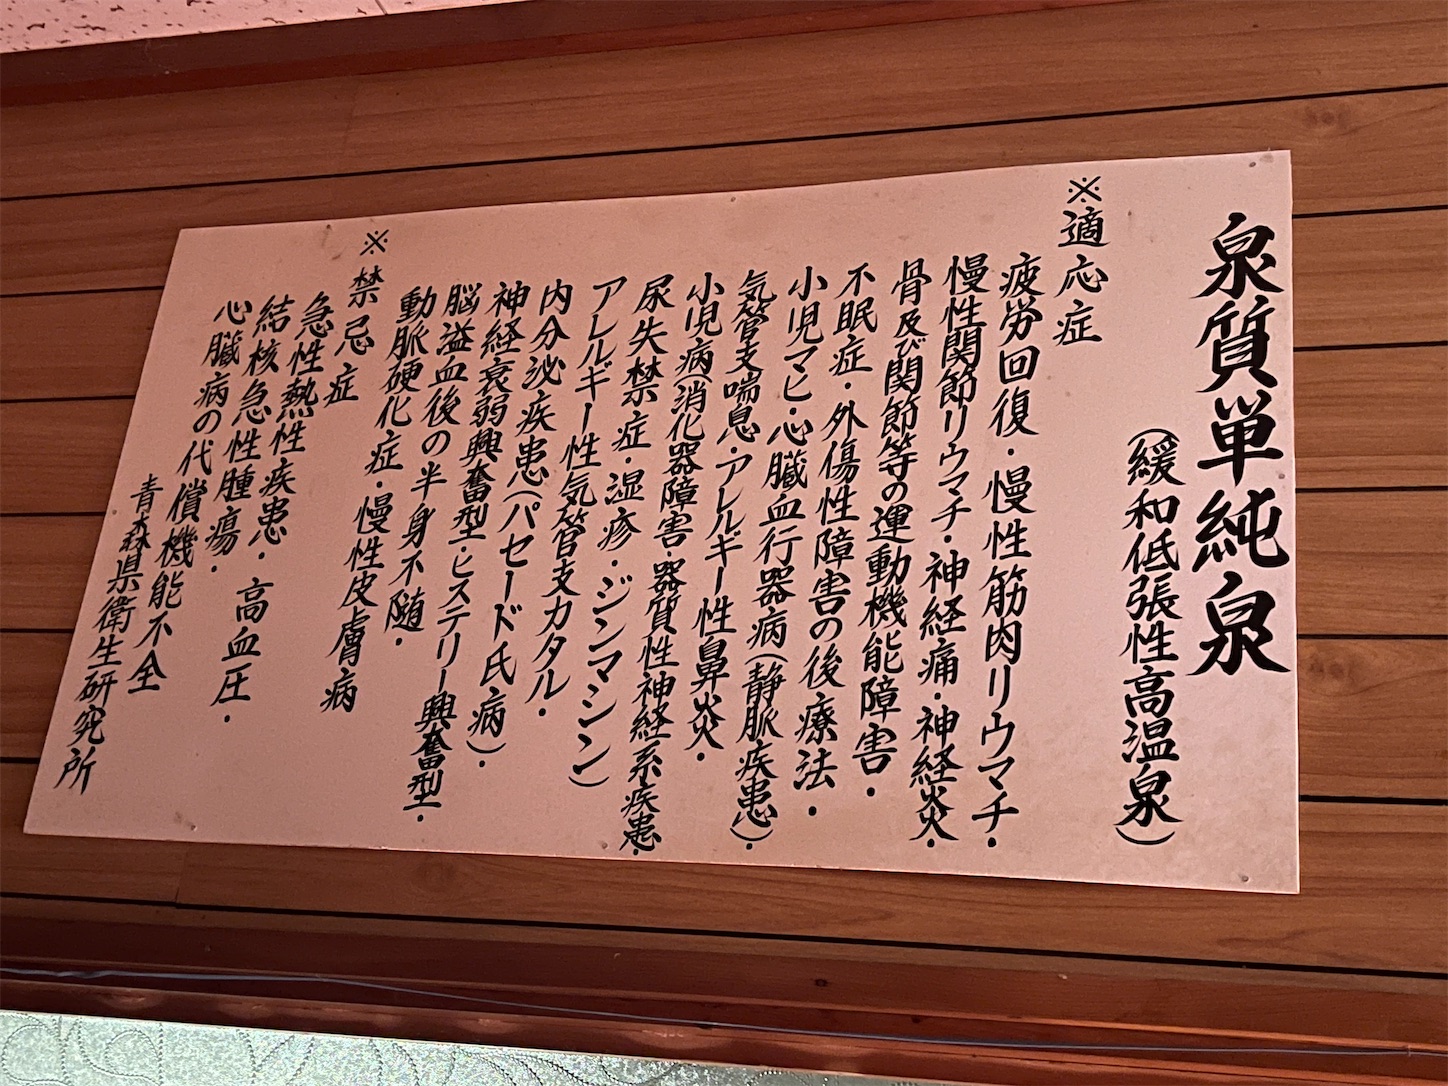 泉質単純泉
(緩和低張性高温泉)
※適応症
疲労回復・慢性筋肉リウマチ・
慢性関節リウマチ・神経痛・神経炎・
骨及び関節等の運動機能障害・
不眠症・外傷性障害の後療法・
小児マヒ・心臓血行器病(静脈疾患)・
気管支喘息・アレルギー性鼻炎・
小児病(消化器障害・器質性神経系疾患・
尿失禁症・湿疹・ジンマシン)
アレルギー性気管支カタル・
内分泌疾患(パセード氏病)・
神経衰弱興奮型・ヒステリー興奮型・
脳溢血後の半身不随・
動脈硬化症・慢性皮膚病
※禁忌症
急性熱性疾患・高血圧・
結核急性腫瘍・
心臓病の代償機能不全
青森県衛生研究所